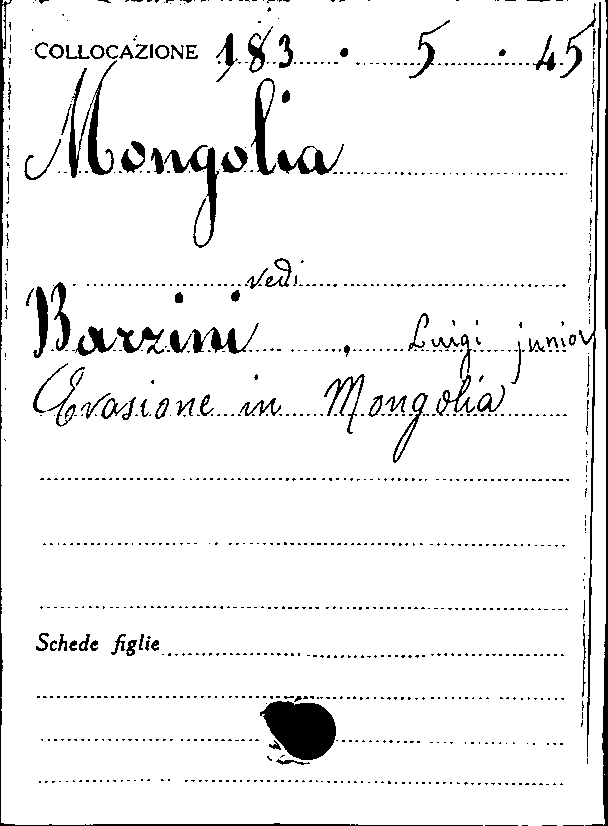 COLLOCAZIONE 183 . 5 . 45
Mongolia
vedi
Barzini , Luigi junior
Evasione in Mongolia
Schede figlie